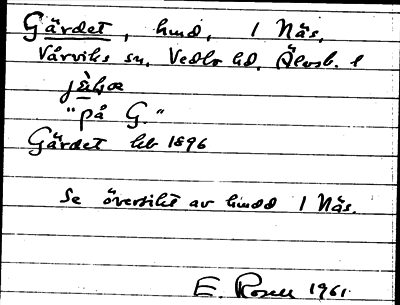 Gärdet, hmd, 1 Näs,
Vårviks sn, Vedbo hd, Älvsb. l
"på G."
Gärdet hb 1896
Se översikt av hmdd 1 Näs.
E. Rosell 1961